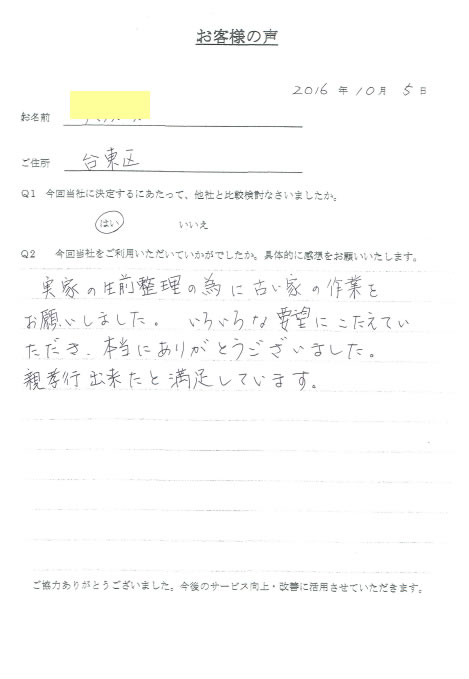 お客様の声
2016 年 10月 5日
お名前
ご住所 台東区
Q1 今回当社に決定するにあたって、他社と比較検討なさいましたか。
はい いいえ
Q2 今回当社をご利用いただいていかがでしたか。具体的に感想をお願いいたします。
実家の生前整理の為に古い家の作業を
お願いしました。 いろいろな要望にこたえてい
ただき、本当にありがとうございました。
親孝行出来たと満足しています。
ご協力ありがとうございました。今後のサービス向上・改善に活用させていただきます。